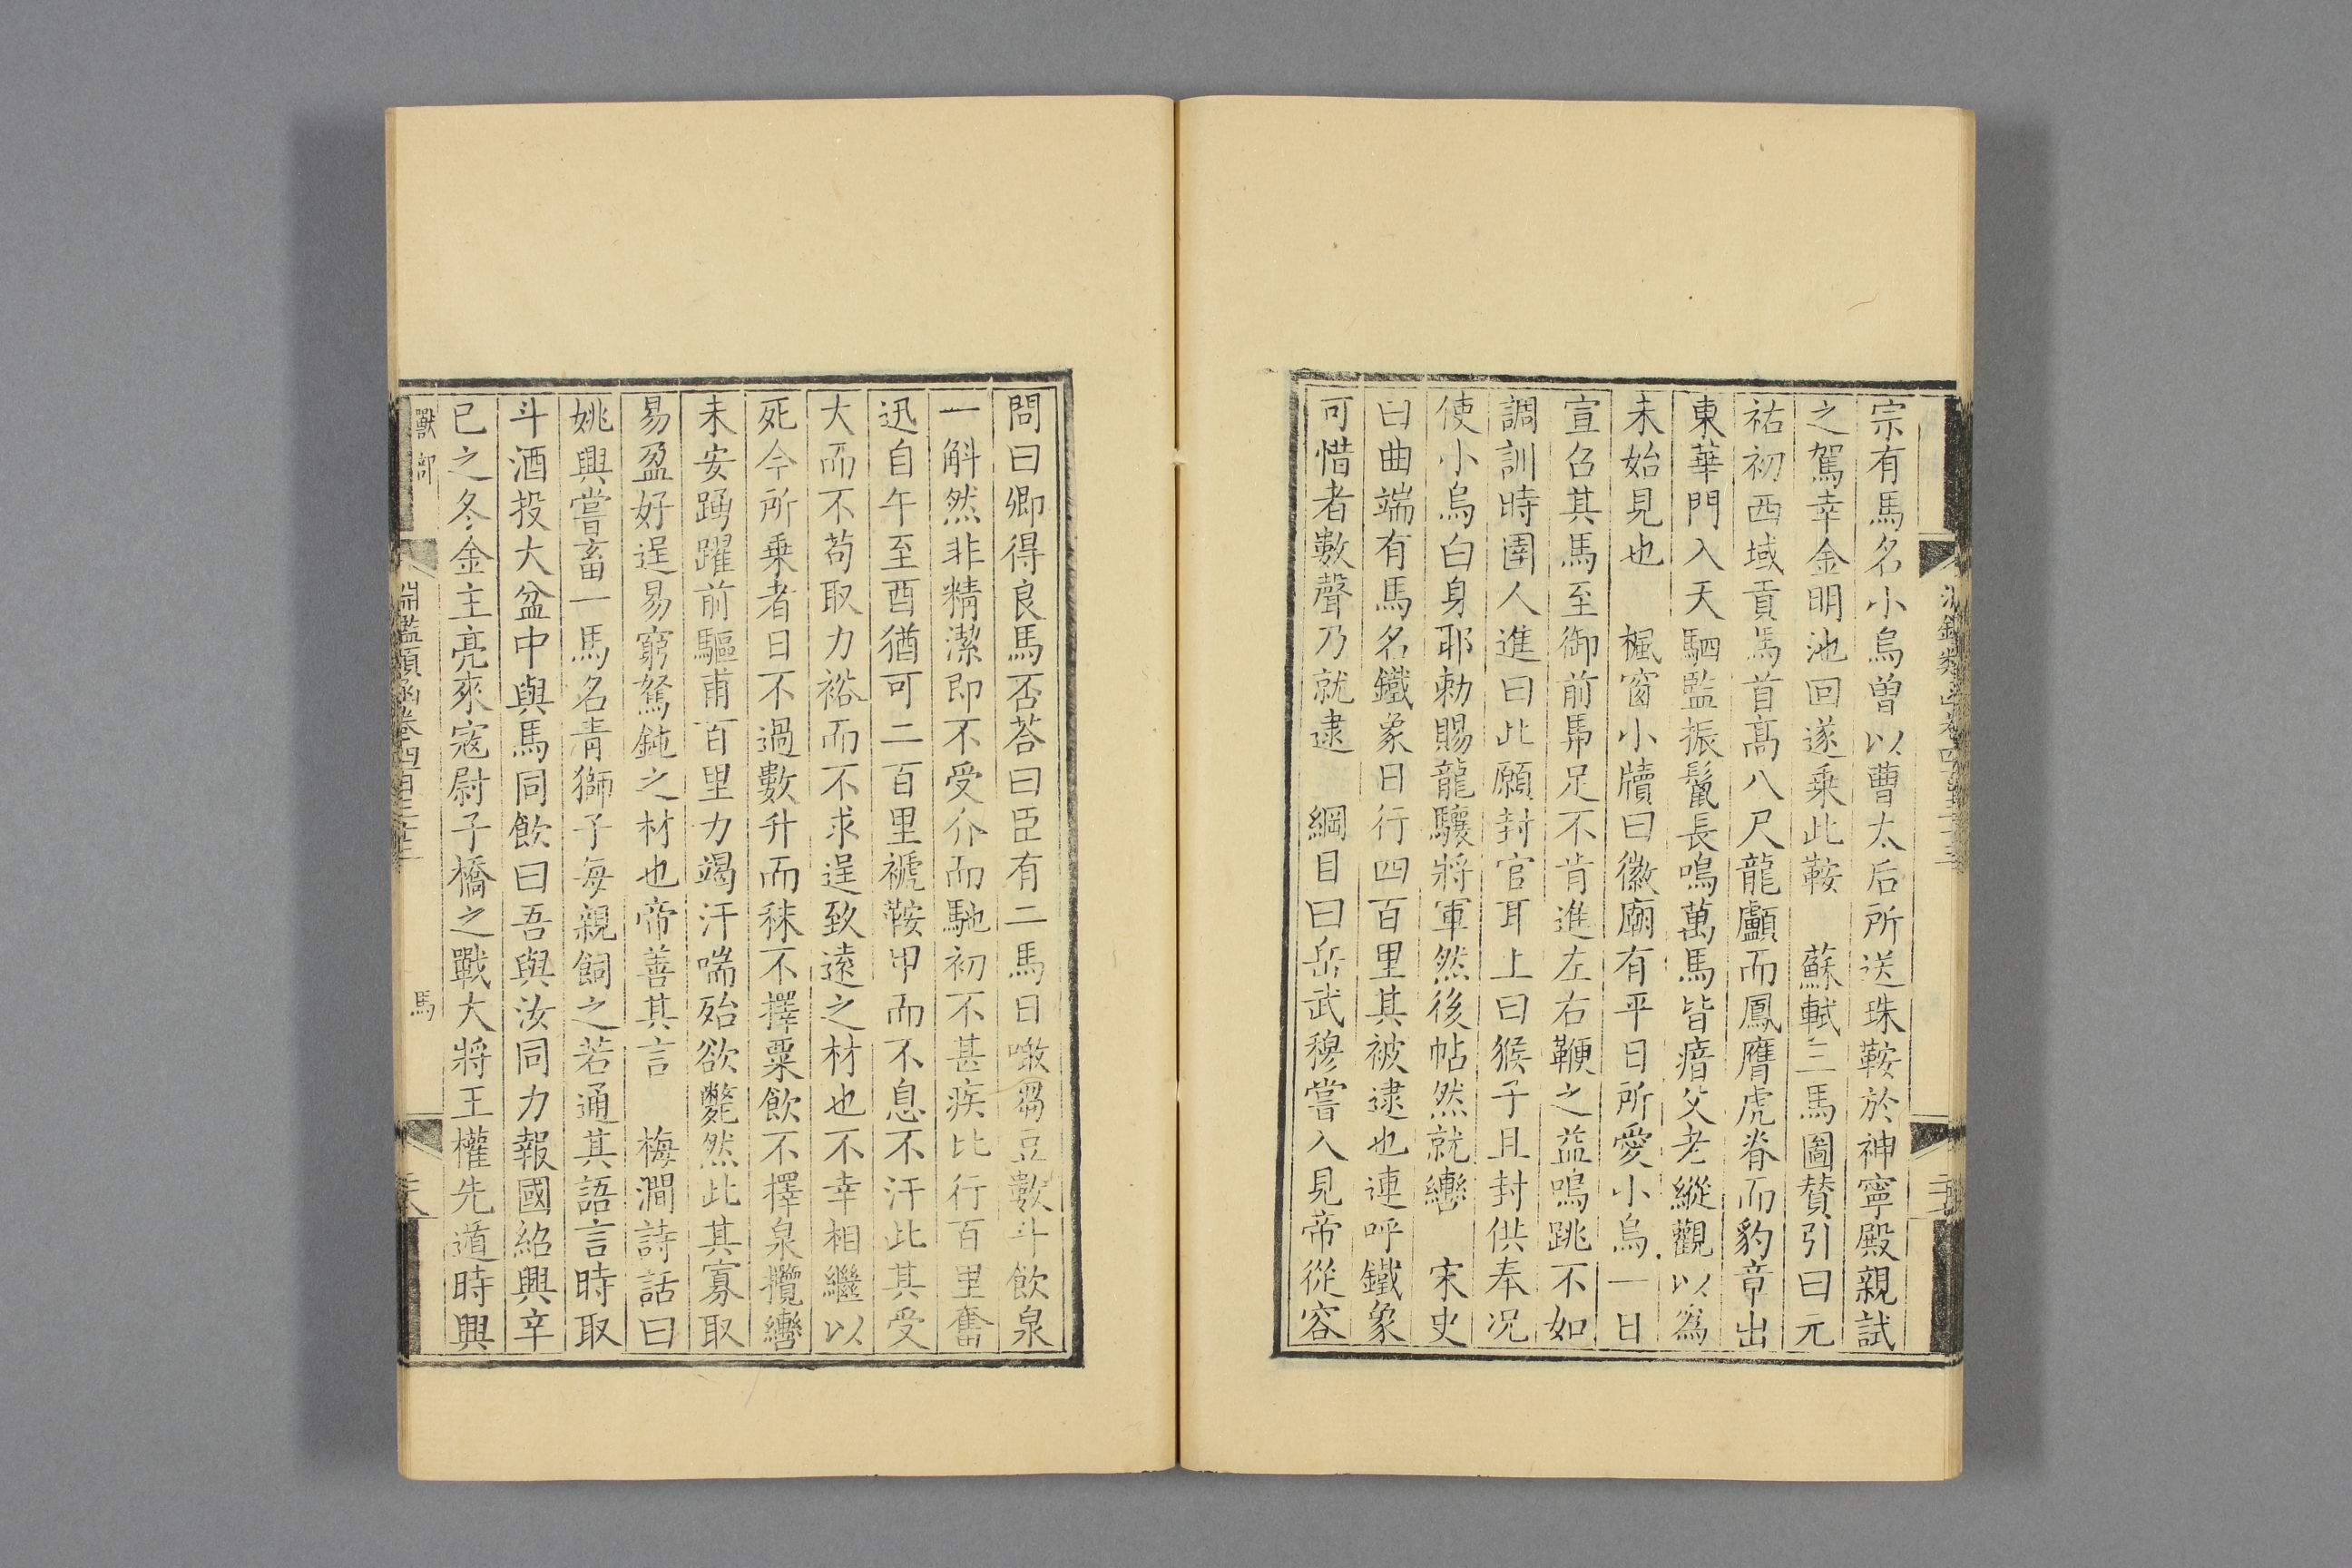 宗有馬名小烏曽以曹太后所送珠鞍於神寧殿親試
之駕幸金明池回遂乗此鞍　蘇軾三馬圖贊引曰元
祐初西域貢馬首髙八尺龍顱而鳳膺虎脊而豹章出
東華門入天駟監振鬛長鳴萬馬皆瘖父老縱觀以為
未始見也　楓窗小牘曰徽廟有平日所愛小烏一日
宣召其馬至御前馬足不肯進左右鞭之益鳴跳不如
調訓時圉人進曰此願封官耳上曰猴子且封供奉况
使小烏白身耶勅賜龍驤將軍然後帖然就轡　宋史
曰曲端有馬名鐵象日行四百里其被逮也連呼鐵象
可惜者數聲乃就逮　綱目曰岳武穆嘗入見帝從容
問曰卿得良馬否荅曰臣有二馬日噉芻豆數斗飲泉
一斛然非精潔即不受介而馳初不甚疾比行百里奮
迅自午至酉猶可二百里褫鞍甲而不息不汗此其受
大而不苟取力裕而不求逞致遠之材也不幸相繼以
死今所乗者日不過數升而秣不擇粟飲不擇泉攬轡
未安踴躍前驅甫百里力竭汗喘殆欲斃然此其寡取
易盈好逞易窮駑鈍之材也帝善其言　梅澗詩話曰
姚興嘗畜一馬名青獅子每親飼之若通其語言時取
斗酒投大盆中與馬同飲曰吾與汝同力報國紹興辛
巳之冬金主亮來寇尉子橋之戰大將王權先遁時興
獸部　淵鑑類函卷四百三十三　馬